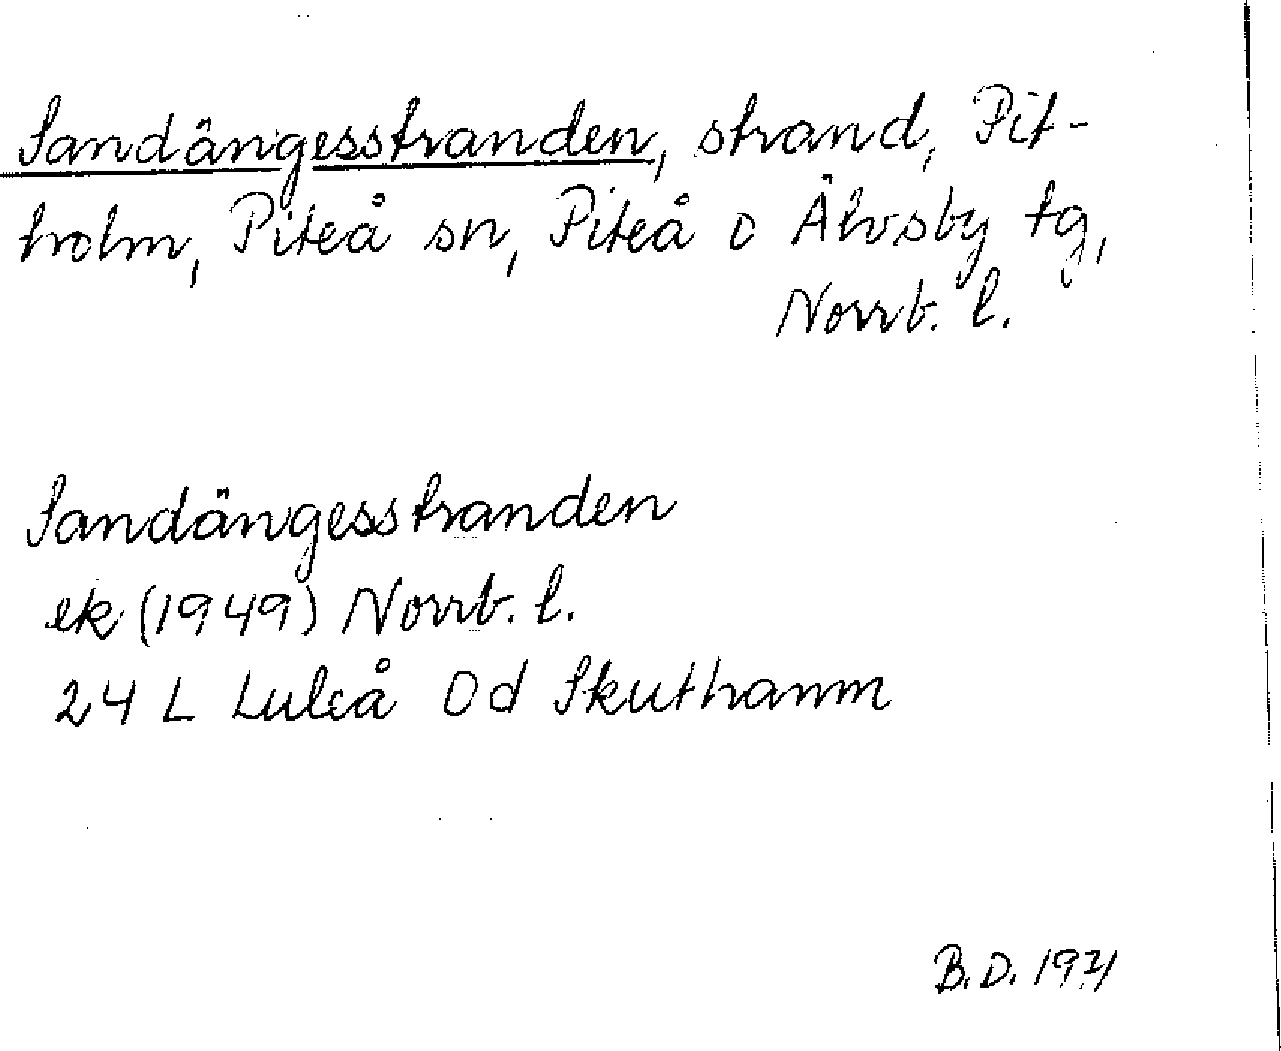 Sandängesstranden, strand, Pit-
holm, Piteå sn, Piteå o Älvsby tg,
Norrb. l.
Sandängesstranden
ek (1949) Norrb. l.
24 L Luleå 0d Skuthamn
B.D. 1971